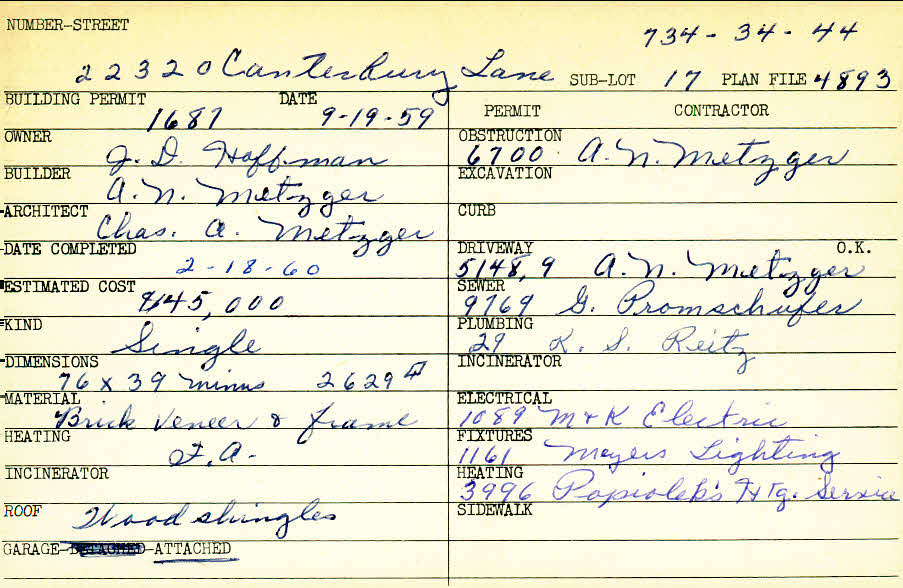 NUMBER-STREET
734-34-44
22320 Canterbury Lane SUB-LOT 17 PLAN FILE 4893
BUILDING PERMIT DATE
1687 9-19-59
OWNER
J. D. Hoffman
BUILDER
A. N. Metzger
ARCHITECT
Chas. A. Metzger
DATE COMPLETED
2-18-60
ESTIMATED COST
$45,000
KIND
Single
DIMENSIONS
76 x 39 minus 2629
MATERIAL
Brick Veneer & frame
HEATING
F.A.
INCINERATOR
ROOF Wood shingles
GARAGE-DETACHED-ATTACHED
PERMIT CONTRACTOR
OBSTRUCTION
6700 A. N. Metzger
EXCAVATION
CURB
DRIVEWAY O.K.
5148,9 A. N. Metzger
SEWER
9769 G. Promschufer
PLUMBING
29 K. S. Reitz
INCINERATOR
ELECTRICAL
1089 M & K Electric
FIXTURES
1161 Meyers Lighting
HEATING
3996 Papiolek's Htg. Service
SIDEWALK